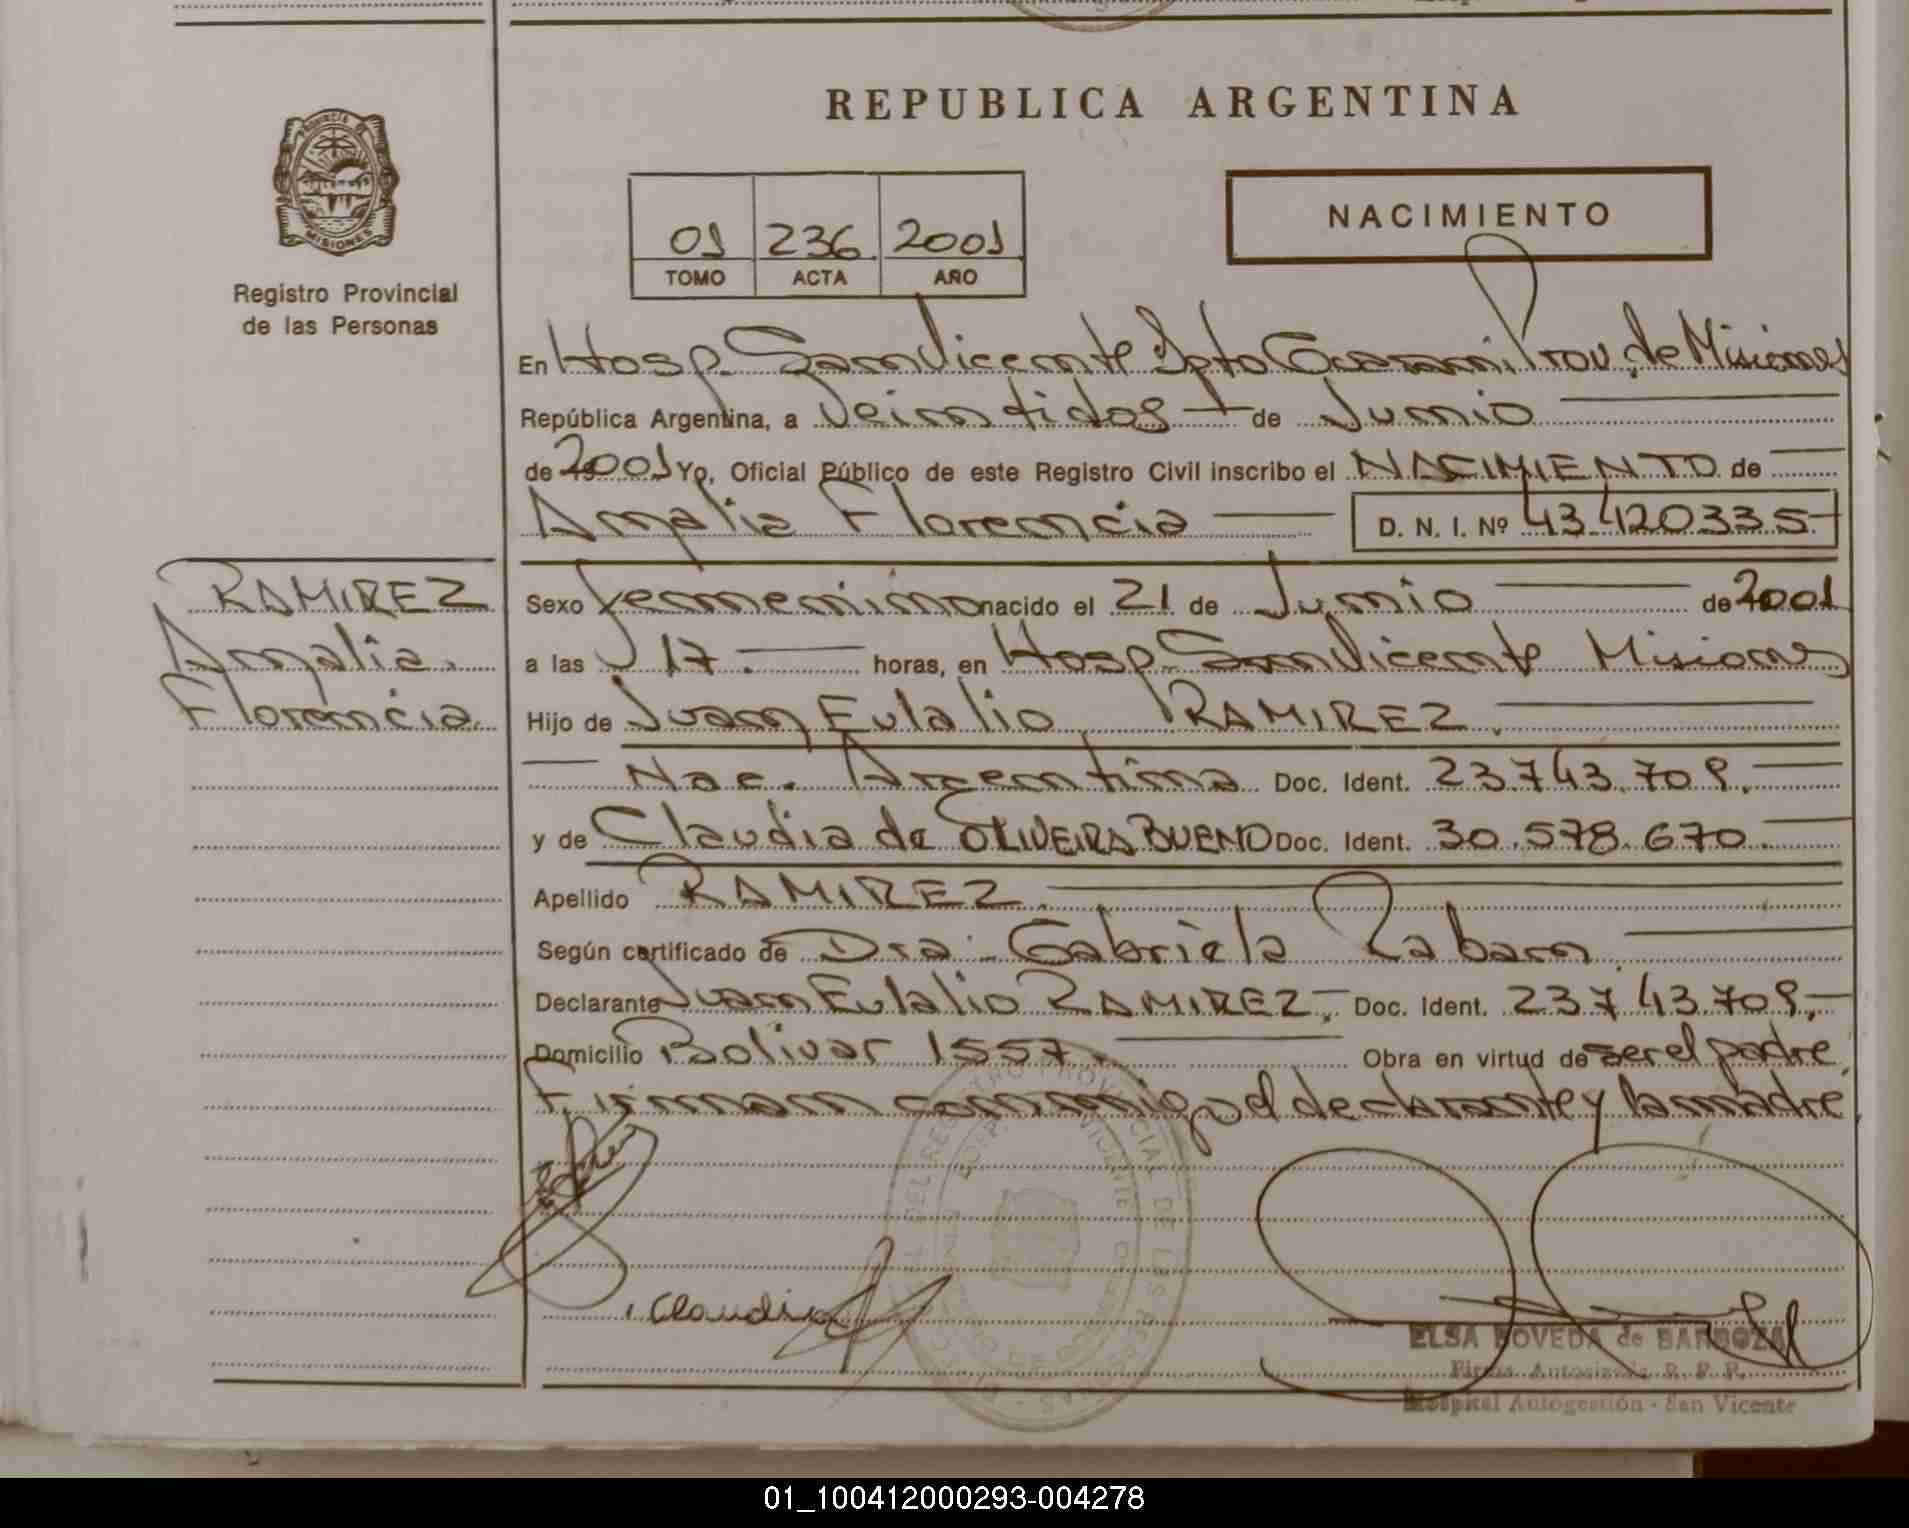 REPUBLICA ARGENTINA
PROVINCIA DE MISIONES
Registro Provincial
de las Personas
NACIMIENTO
01 236 2001
TOMO ACTA AÑO
En Hosp. San Vicente Dpto Guarani, Prov. de Misiones
República Argentina, a Veintidos de Junio
de 2001 Yo, Oficial Público de este Registro Civil inscribo el NACIMIENTO de
Amalia Florencia D. N. I. Nº 43.420335
RAMIREZ
Amalia
Florencia
Sexo femenino nacido el 21 de Junio de 2001
a las 17. horas, en Hosp. San Vicente Misiones
Hijo de Juan Eulalio RAMIREZ
Nac. Argentina Doc. Ident. 23.743.709.
y de Claudia de OLIVEIRA BUENO Doc. Ident. 30.578.670.
Apellido RAMIREZ.
Según certificado de Dra. Gabriela Zaban
Declarante Juan Eulalio RAMIREZ, Doc. Ident. 23.743.709,
Domicilio Bolivar 1557. Obra en virtud de ser el padre.
Firman conmigo el declarante y la madre.
Claudia
ELSA BOVEDA de BARBOZA
Firma Autorizada R. P. P.
Hospital Autogestión - San Vicente
01_100412000293-004278